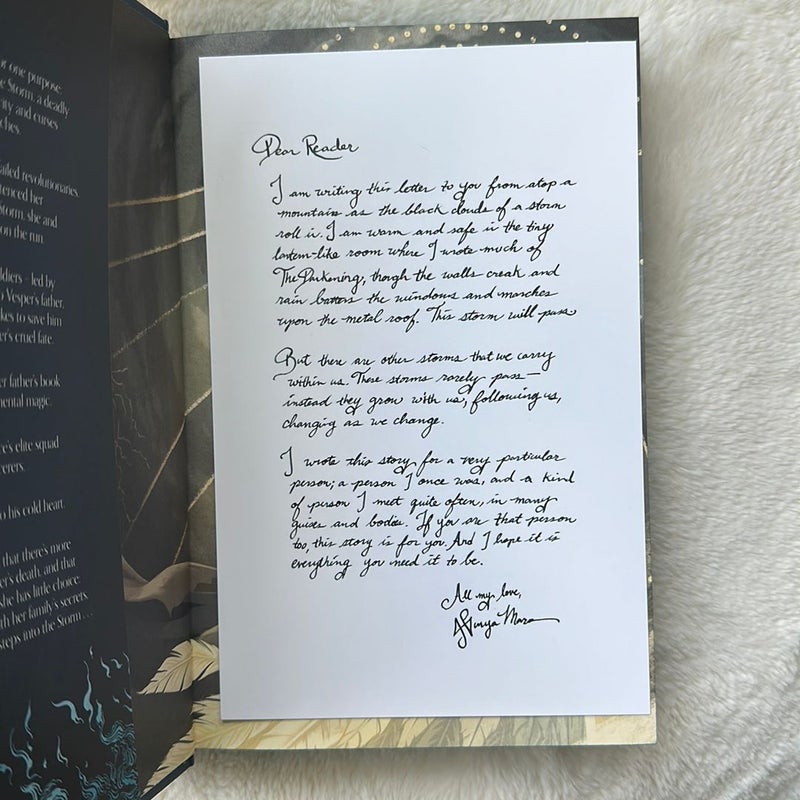 or one purpose
e Storm, a deadly
ity and curses
ches.
ailed revolutionaries.
tenced her
Storm, she and
on the run.
ldiers - led by
o Vesper's father.
kes to save him
er's cruel fate.
er father's book
mental magic.
ce's elite squad
erers.
o his cold heart.
that there's more
er's death, and that
She has little choice
th her family's secrets.
steps into the Storm . . .
Dear Reader
I am writing this letter to you from atop a
mountain as the black clouds of a storm
roll in. I am warm and safe in the tiny
lantern-like room where I wrote much of
The Darkening, though the walls creak and
rain batters the windows and marches
upon the metal roof. This storm will pass
But there are other storms that we carry
within us. These storms rarely pass—
instead they grow with us, following us,
changing as we change.
I wrote this story for a very particular
person; a person I once was, and a kind
of person I meet quite often, in many
guises and bodies. If you are that person
too, this story is for you. And I hope it is
everything you need it to be.
All my love,
Sunya Mara